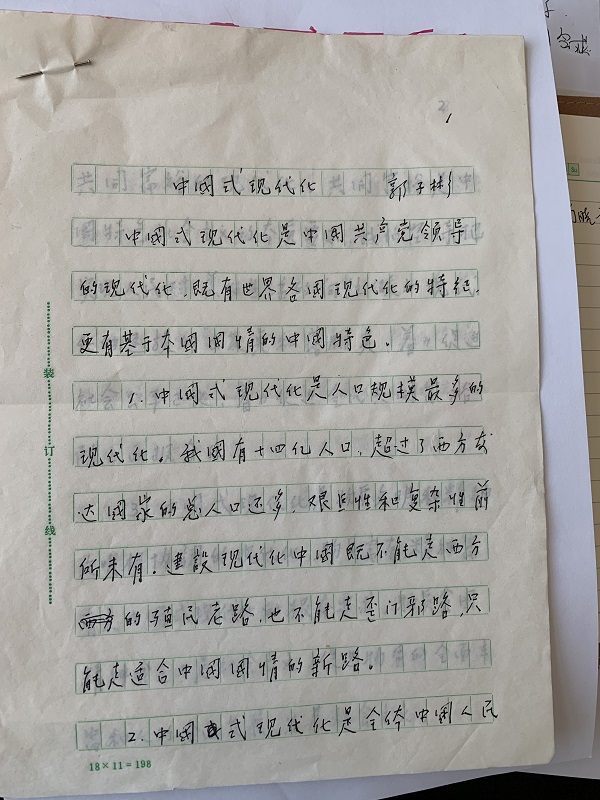 中国式现代化 郭子彬
中国式现代化是中国共产党领导
的现代化，既有世界各国现代化的特征，
更有基于本国国情的中国特色。
1. 中国式现代化是人口规模最多的
现代化。我国有十四亿人口，超过了西方发
达国家的总人口还多，艰巨性和复杂性前
所未有，建设现代化中国既不能走西方
的殖民老路，也不能走歪门邪路，只
能走适合中国国情的新路。
2. 中国式现代化是全体中国人民
装
订
线
18×11=198